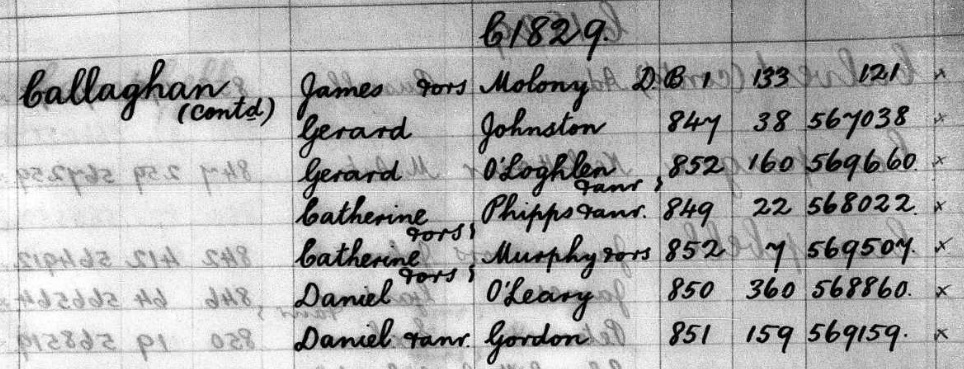 C1829.
Callaghan James & ors Molony D. B 1 133 121 x
(Contd) Gerard Johnston 847 38 567038 x
Gerard O'Loghlen & anr 852 160 569660 x
Catherine & ors Phipps & anr. 849 22 568022 x
Catherine & ors Murphy & ors 852 7 569507. x
Daniel O'Leary 850 360 568860. x
Daniel & anr. Gordon 851 159 569159. x